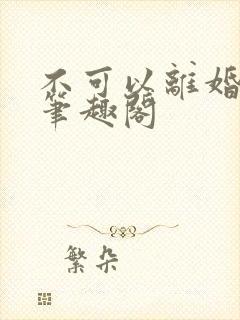 不可以離婚
筆趣閣
繁朵